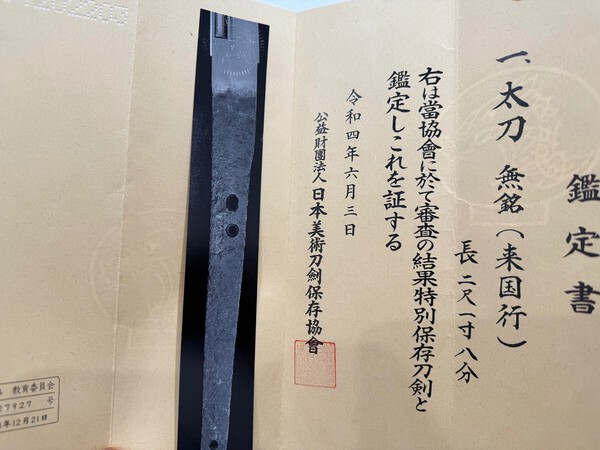 鑑定書
一、太刀 無銘(来国行)
長 二尺一寸八分
右は當協會に於て審査の結果特別保存刀剣と
鑑定しこれを証する
令和四年六月三日
公益財團法人 日本美術刀剣保存協會
教育委員会
号
年12月21日